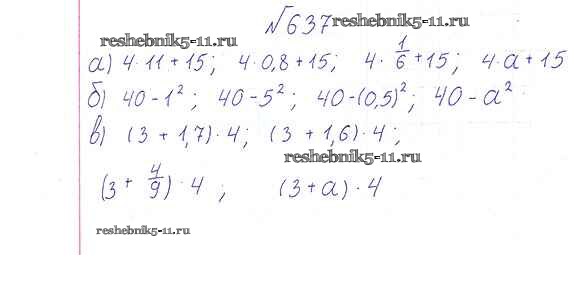 №637 reshebnik5-11.ru
reshebnik5-11.ru
а) 4·11+15; 4·0,8+15; 4·1/6+15; 4·a+15
б) 40-1²; 40-5²; 40-(0,5)²; 40-a²
в) (3+1,7)·4; (3+1,6)·4;
reshebnik5-11.ru
(3+4/9)·4; (3+a)·4
reshebnik5-11.ru